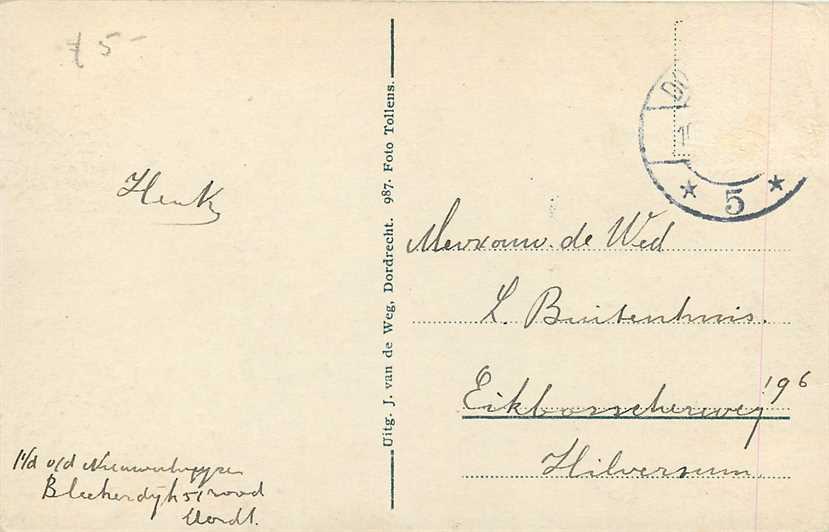 £ 5-
DO
5
Henk
Uitg. J. van de Weg, Dordrecht. 987. Foto Tollens.
Mevrouw. de Wed
L. Buitenhuis.
Eikbosscherweg 196
Hilversum.
v/d
Bleekersdijk 51 rood
Dordt.